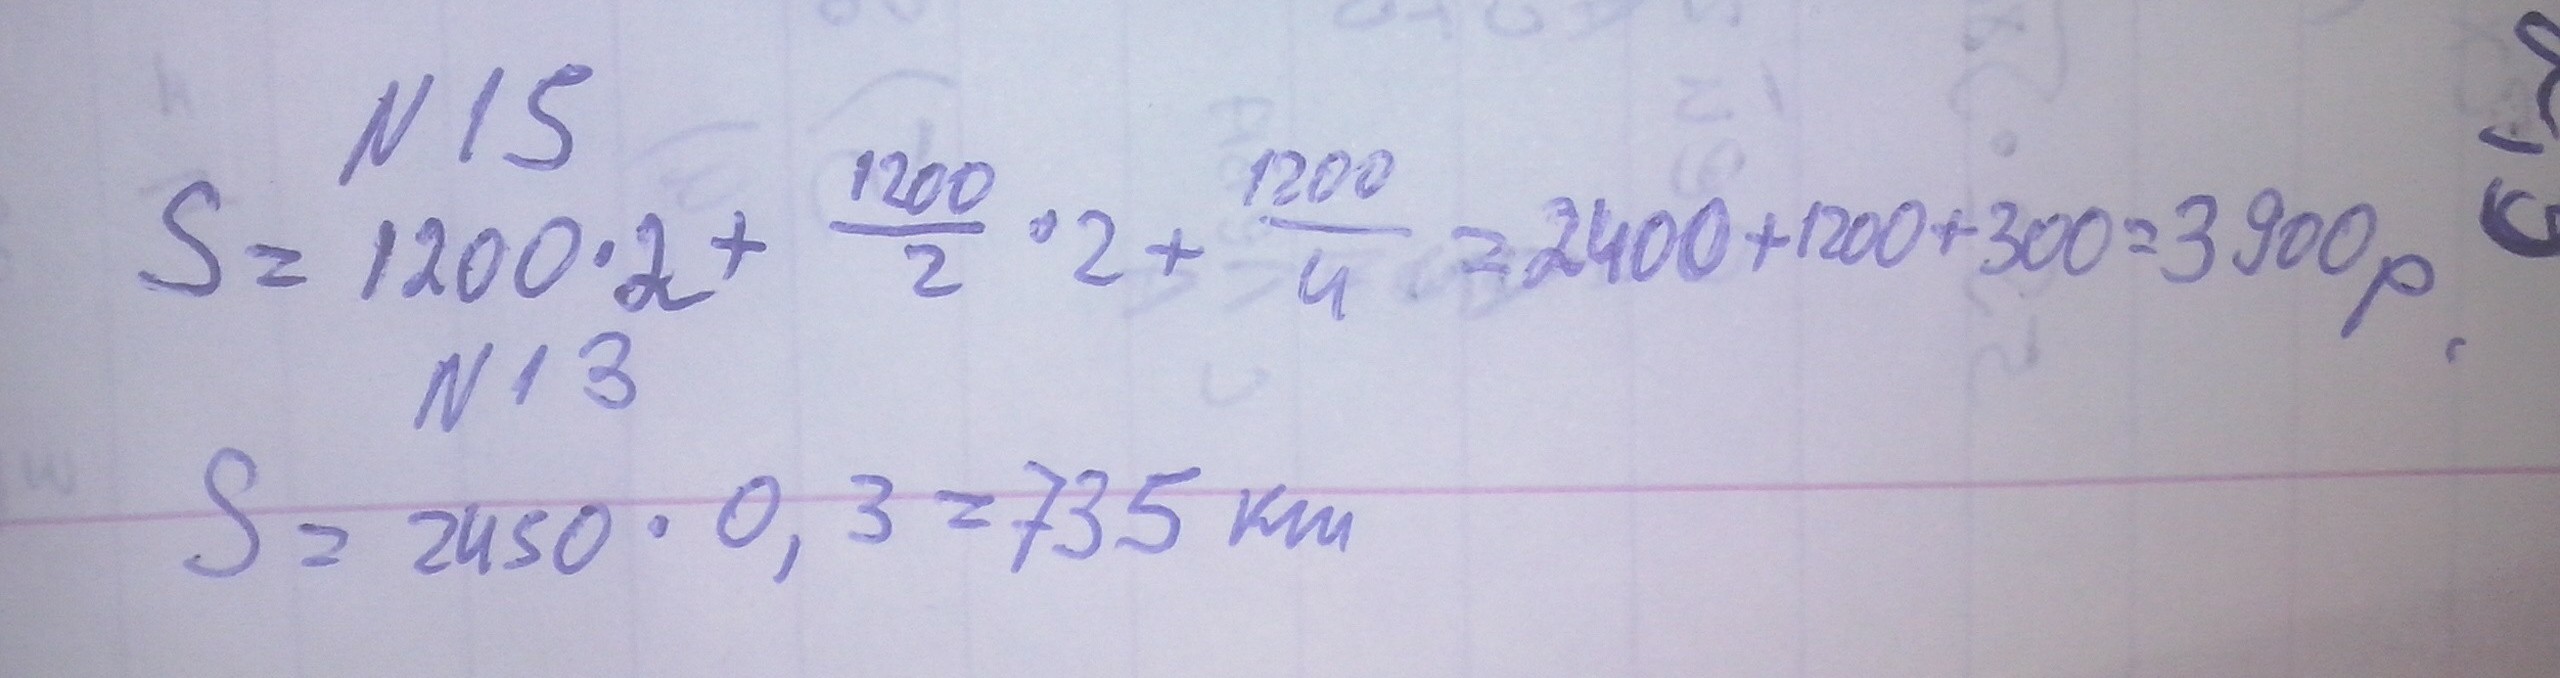 N15
S = 1200·2 + 1200/2 · 2 + 1200/4 = 2400+1200+300=3900р.
N13
S = 2450 · 0,3 = 735 км